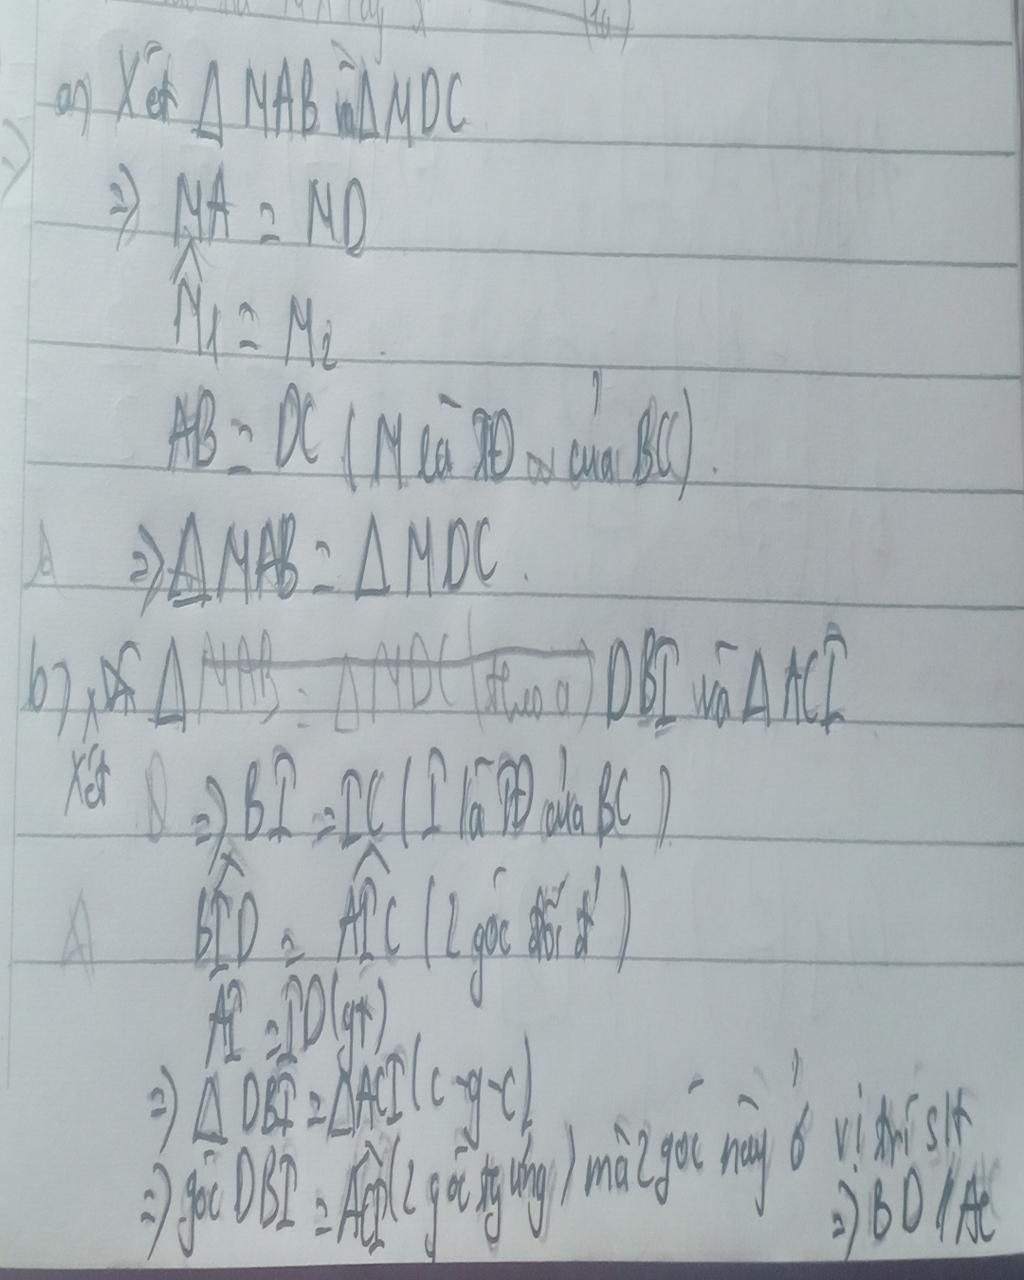 a) Xét Δ MAB và Δ MDC
=) MA = MD
M̂1 = M2
AB = DC ( M là TĐ của BC ) .
=) Δ MAB = Δ MDC .
b) Δ MAB = Δ MDC ( theo a ) DBI và Δ ACI
Xét =) BI = IC ( I là TĐ của BC )
BÎD = AÎC ( 2 góc đối đ' )
AI = ID (gt)
=) Δ DBI = Δ ACI ( c-g-c )
=) góc DBI = ACI ( 2 góc tg ứng ) mà 2 góc này ở vị trí slt
=) BD // AC